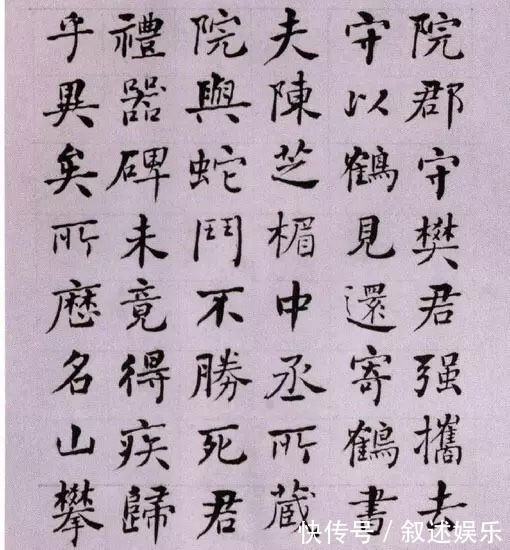 院郡守樊君强攜去
守以鶴見還寄鶴書
夫陳芝楣中丞所蔵
院與蛇鬥不勝死君
禮器碑未竟得疾歸
乎異矣所歷名山攀
快传号／叙述娱乐